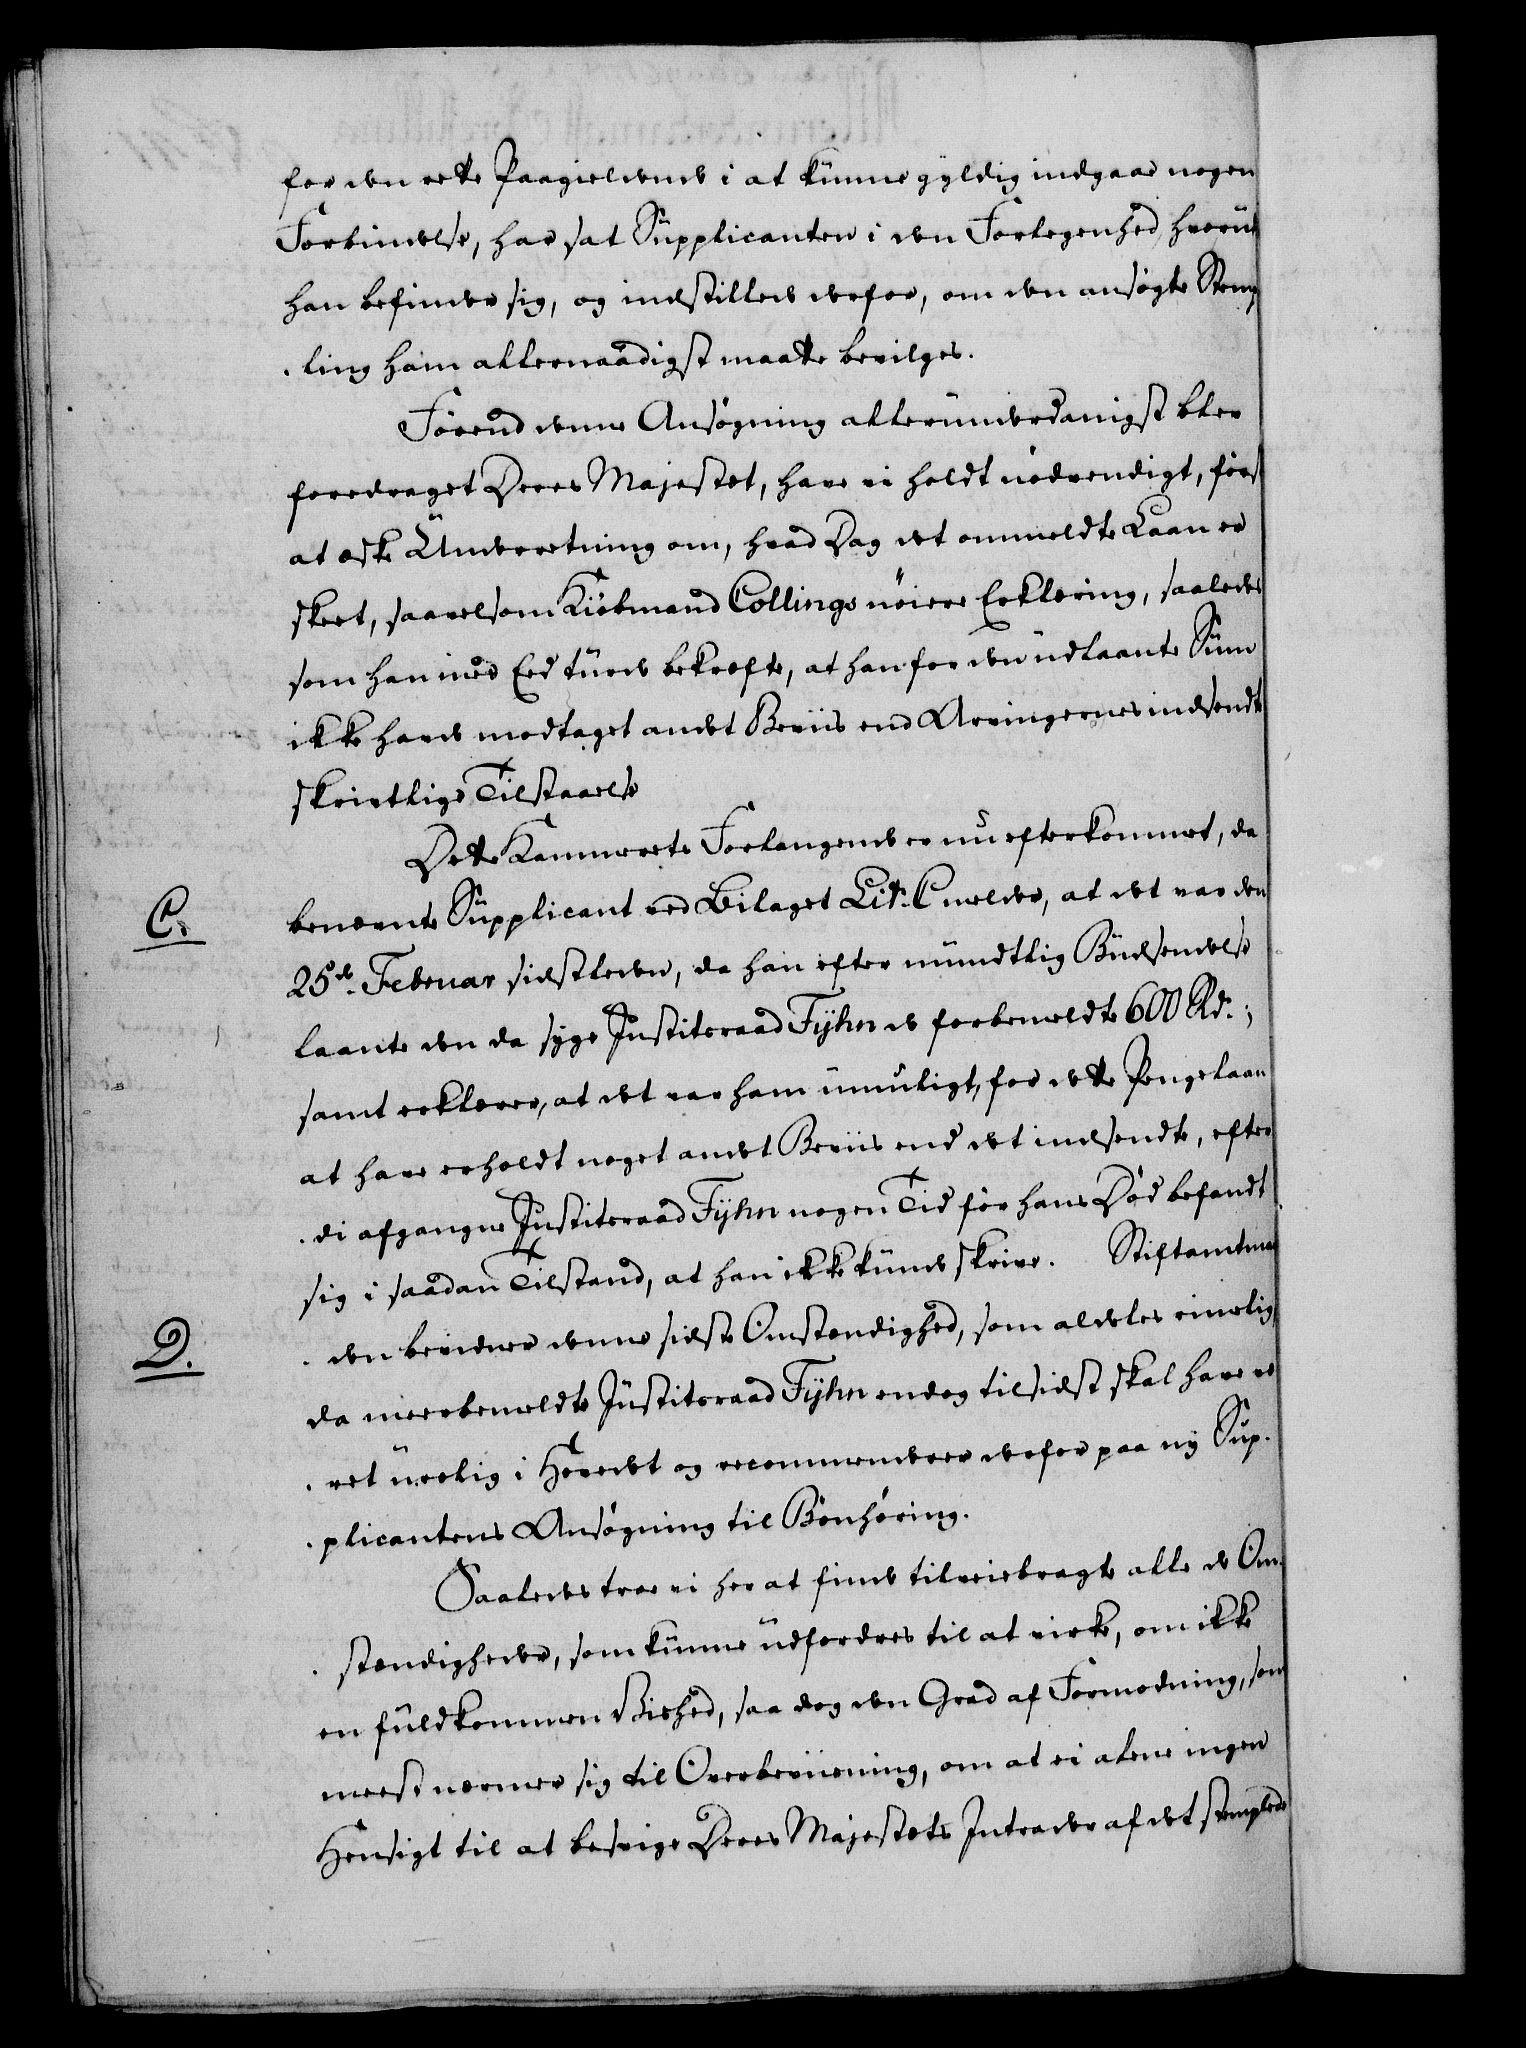 for den rette Paagieldende i at kunne gyldig indgaae nogen
Forbindelse, har sat Supplicanten i den Forlegenhed, hvorud
han befinder sig, og indstilled derfor, om den ansøgte Stemp
ling ham allernaadigst maatte bevilges.
Førend denne Ansøgning allerunderdanigst blev
foredraget Deres Majestet, have vi holdt nødvendigt, først
at æske Underretning om, hvad Dag det ommeldte Laan er
skeet, saavelsom Kiøbmand Collings nøiere Erklæring, saaledes
som han med Eed turde bekræfte, at han for den udlaante Sum
ikke havde modtaget andet Beviis end Arvingernes indsendte
skriftlige Tilstaaelse
Dette Kammerets Forlangende er nu efterkommet, da
C.
benævnte Supplicant ved Bilaget Litr. C melder, at det var den
25de Februar sidstleden, da han efter mundtlig Budsendelse
laante den da syge Justitsraad Fyhn de forbemeldte 600 Rd.;
samt erklærer, at det var ham umuligt, for dette Pengelaan
at have erholdt noget andet Beviis end det indsendte, efter
di afgangne Justitsraad Fyhn nogen Tid før hans Død befandt
sig i saadan Tilstand, at han ikke kunde skrive. Stiftamtman
D.
den bevidner denne sidste Omstændighed, som aldeles rimelig,
da meerbemeldte Justitsraad Fyhn endog tilsidst skal have væ
ret urolig i Hovedet og recommenderer derfor paa ny Sup
plicantens Ansøgning til Bønhøring.
Saaledes troe vi her at finde tilveiebragte alle de Om
stændigheder, som kunne udfordres til at virke, om ikke
en fuldkommen Vished, saa dog den Grad af Formodning, som
meest nærmer sig til Overbeviisning, om at ei alene ingen
Hensigt til at besvige Deres Majestets Intrader af det stemplede